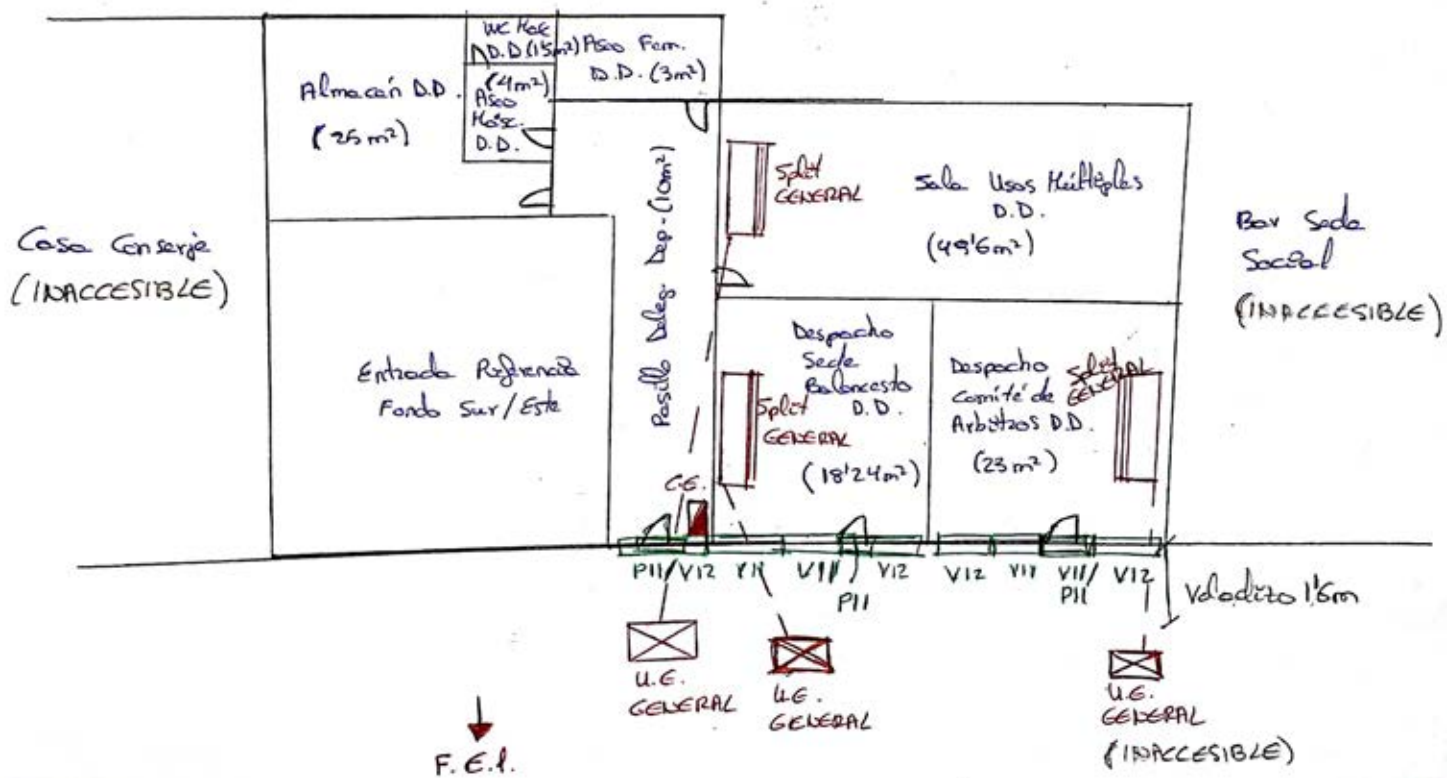 WC Masc
D.D (1'5m²)
Aseo Fem.
D.D. (3m²)
Almacén D.D.
(25 m²)
(4m²)
Aseo
Masc.
D.D.
Pasillo Deleg. Dep. (10m²)
Split
GENERAL
Sala Usos Múltiples
D.D.
(49'6m²)
Casa Conserje
(INACCESIBLE)
Bar Sede
Social
(INACCESIBLE)
Entrada Referencia
Fondo Sur/Este
Despacho
Sede
Baloncesto
D.D.
(18'24m²)
Split
GENERAL
Despacho
Comité de
Arbitros D.D.
(23 m²)
Split
GENERAL
C.E.
P11/V12 V11 V11/ V12 V12 V11 V11/ V12
P11 P11
Voladizo 1'6m
U.E.
GENERAL
U.E.
GENERAL
U.E.
GENERAL
(INACCESIBLE)
F.E.I.